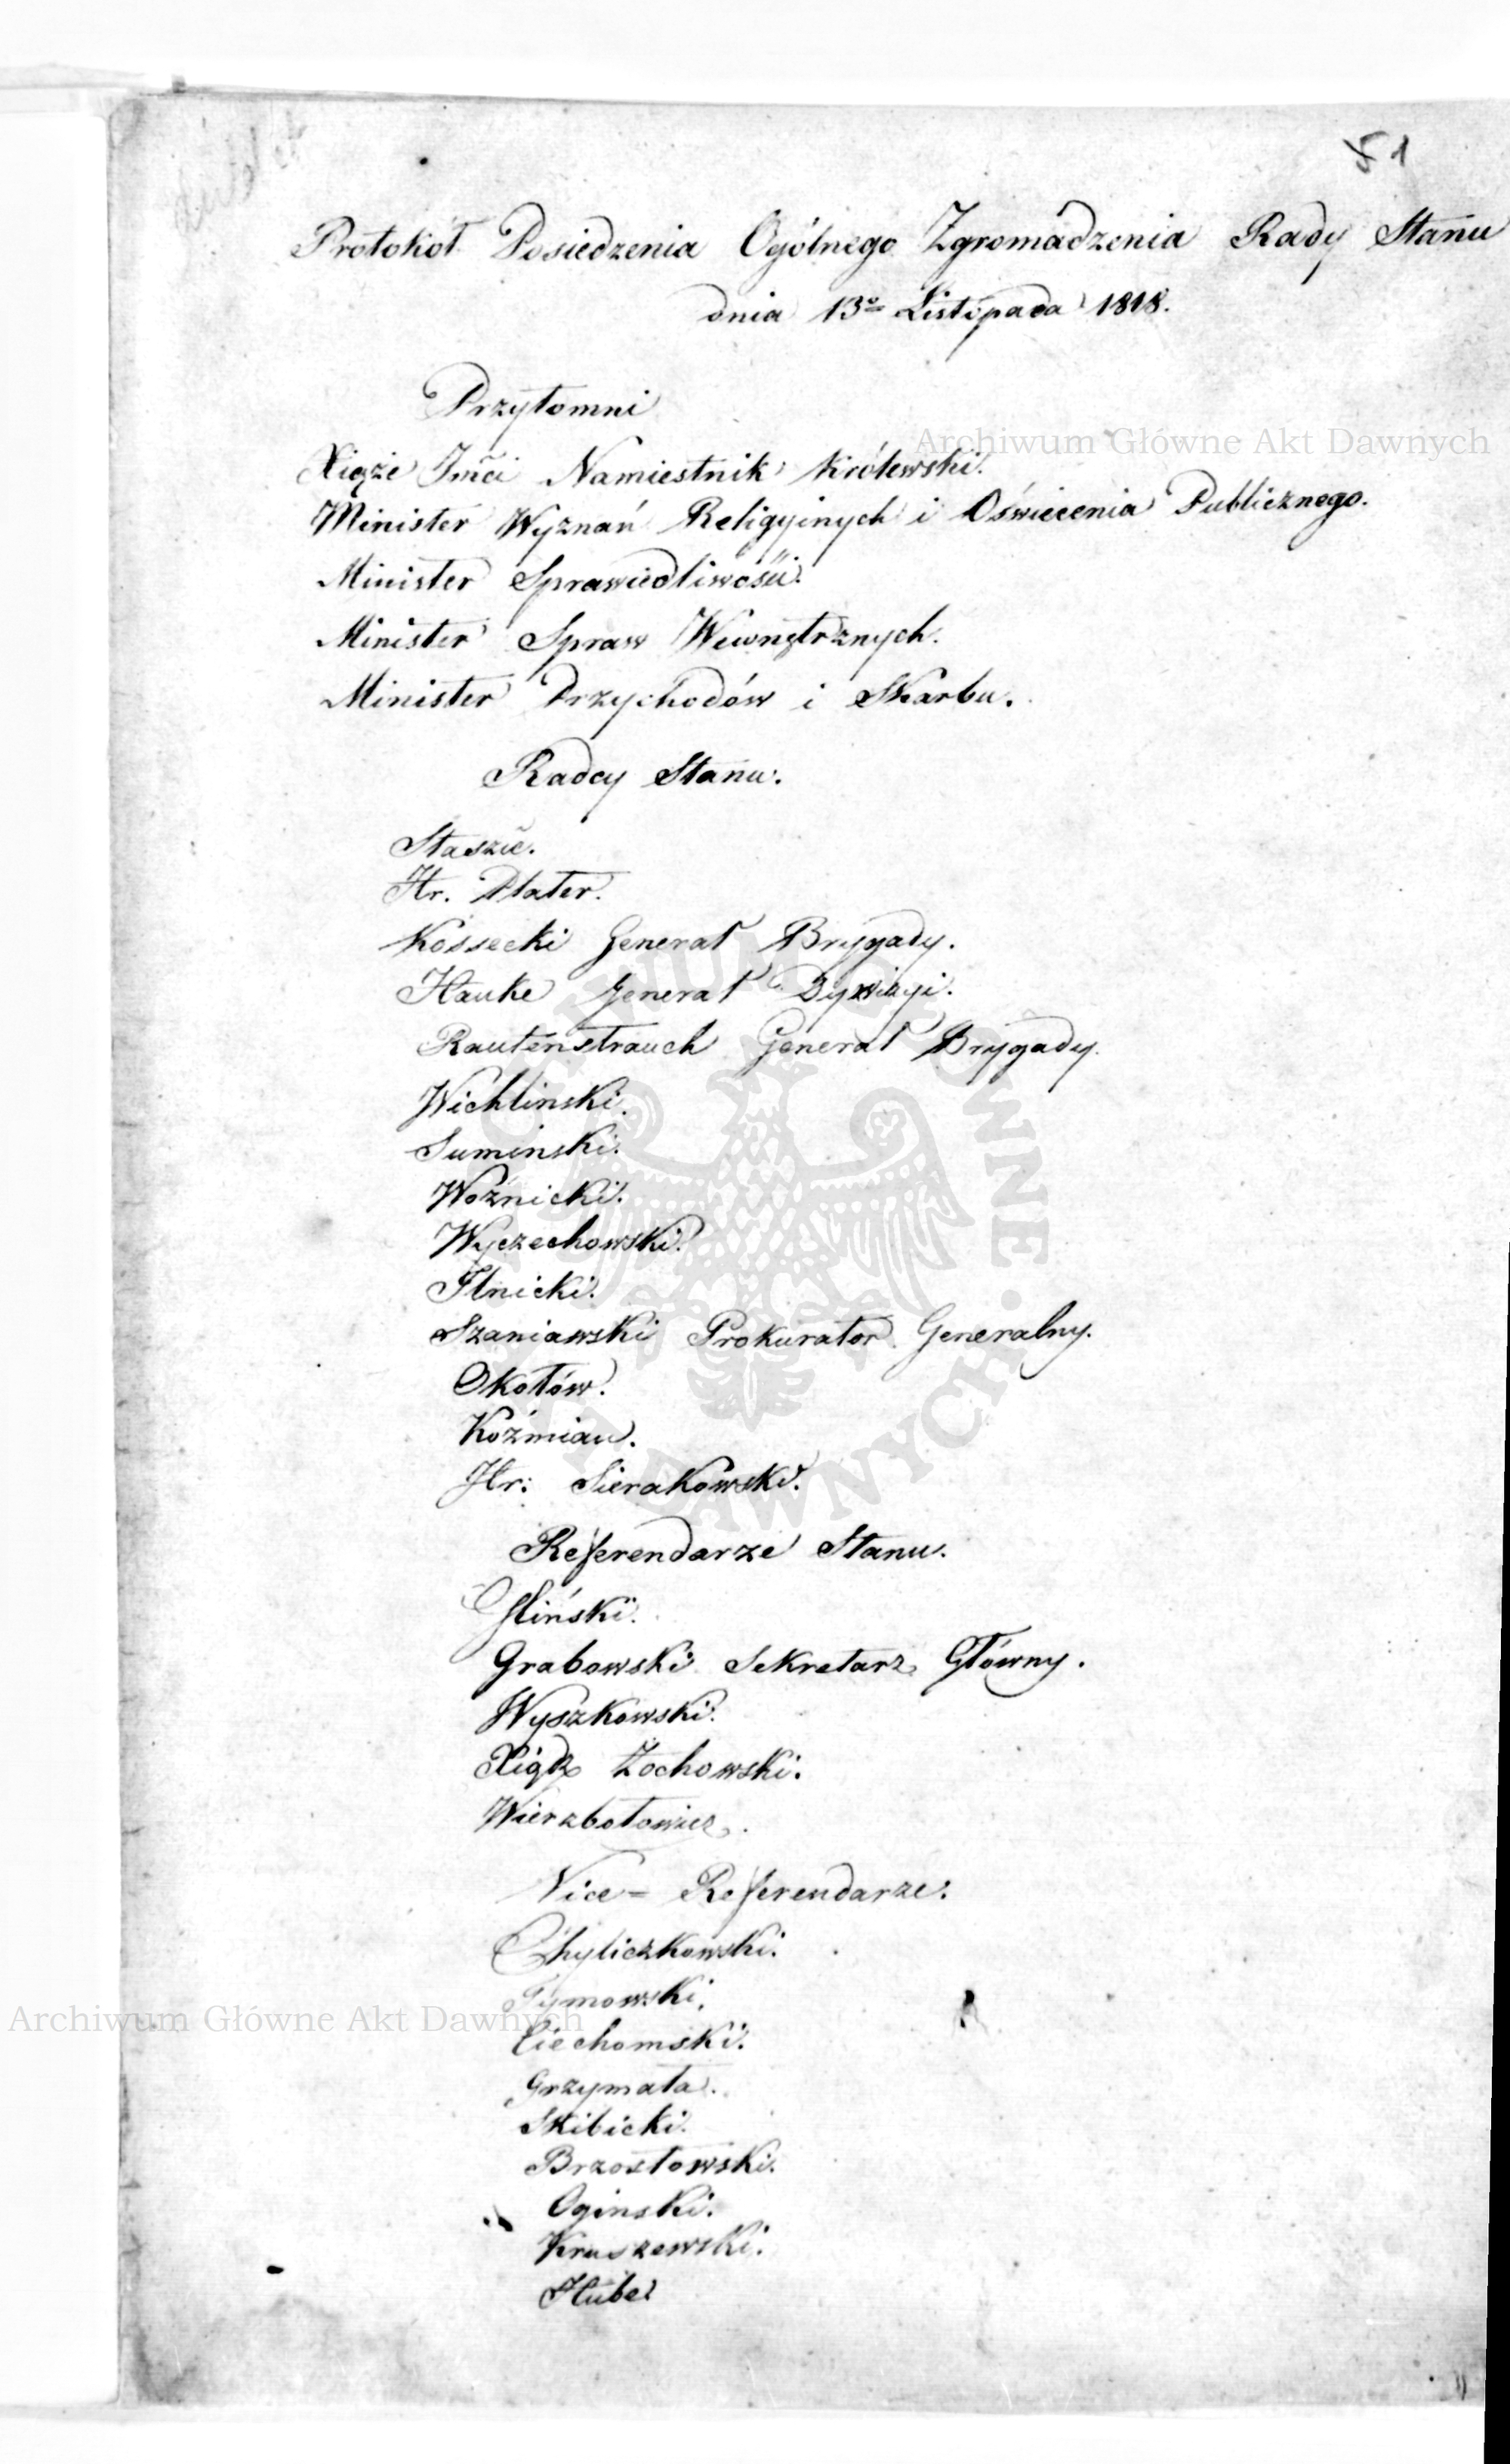 51
Protokół Posiedzenia Ogólnego Zgromadzenia Rady Stanu
dnia 13º Listopada 1818.
Przytomni
Archiwum Główne Akt Dawnych
Xiąże Jmći Namiestnik Królewski.
Minister Wyznań Religyinych i Oświecenia Publicznego.
Minister Sprawiedliwości.
Minister Spraw Wewnętrznych.
Minister Przychodów i Skarbu.
Radcy Stanu.
Staszic.
Hr. Plater.
Kossecki Generał Brygady.
Hauke Generał Dywizyi.
Rautenstrauch Generał Brygady.
Wichlinski.
Suminski.
Woźnicki.
Wyczechowski.
Ilnicki.
Szaniawski Prokurator Generalny.
Okołów.
Koźmian.
Hr: Sierakowski.
Referendarze Stanu.
Gliński.
Grabowski Sekretarz Główny.
Wyszkowski.
Xiądz Zochowski.
Wierzbołowicz.
Vice = Referendarze.
Chyliczkowski.
Tymowski.
Archiwum Główne Akt Dawnych
Ciechomski.
Grzymała.
Skibicki.
Brzostowski.
Oginski.
Kruszewski.
Hube